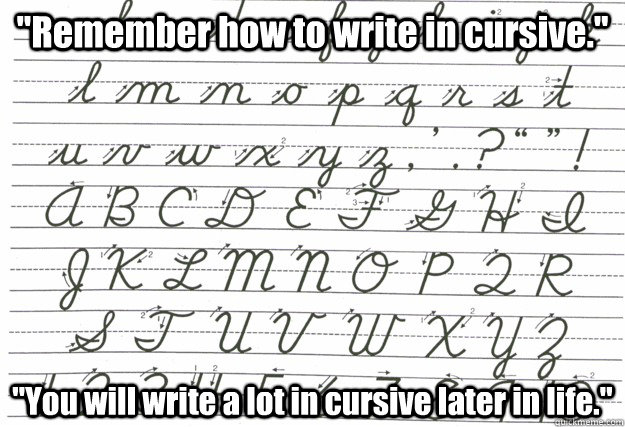 "Remember how to write in cursive."
l m n o p q r s t
u v w x y z , ' . ? “ ” !
A B C D E F G H I
J K L M N O P Q R
S T U V W X Y Z
"You will write a lot in cursive later in life."
quickmeme.com